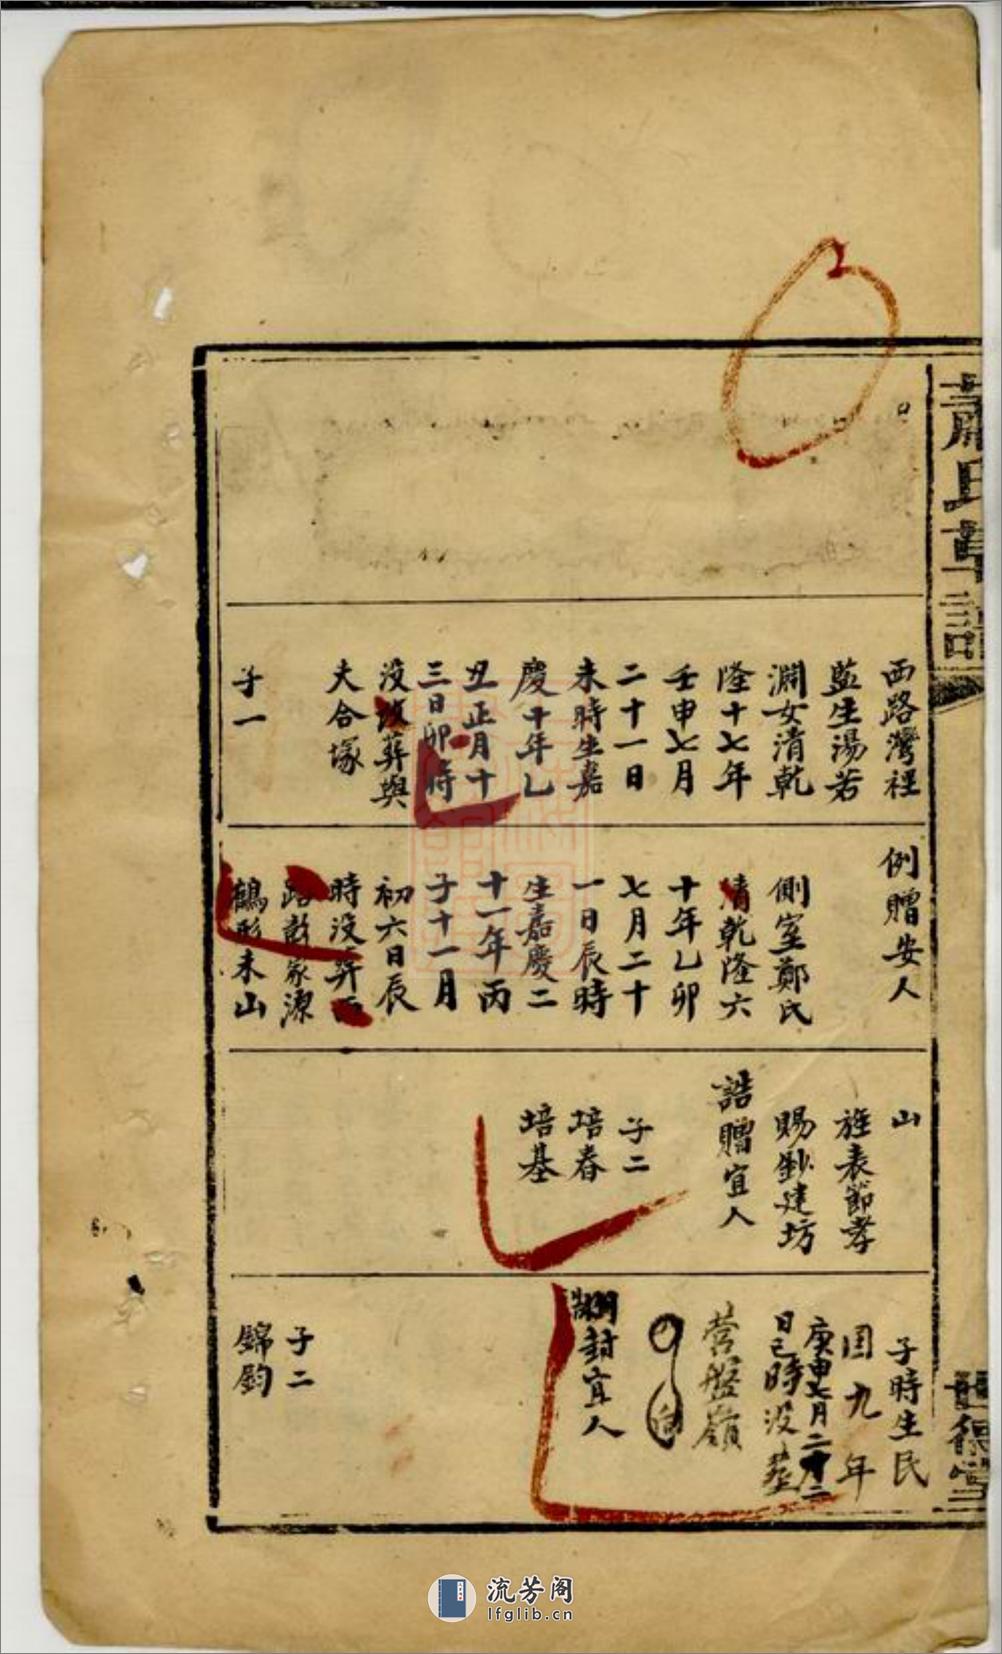 蕭氏草譜
西路灣裡
監生湯若
淵女清乾
隆十七年
壬申七月
二十一日
未時生嘉
慶十年乙
丑正月十
三日卯時
没改葬與
夫合塚
子一
例贈安人
側室鄭氏
清乾隆六
十年乙卯
七月二十
一日辰時
生嘉慶二
十一年丙
子十一月
初六日辰
時没葬西
路彭家源
鶴形未山
山
旌表節孝
賜鈔建坊
誥贈宜人
子二
培春
培基
子時生民
國九年
庚申七月二十二
日巳時没葬
营盤嶺
向
封宜人
子二
錦鈞
流芳阁
lfglib.cn